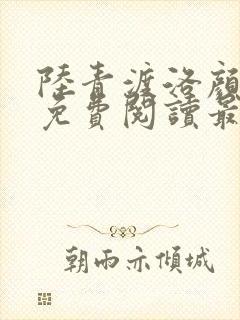 陸青渡洛顏
免費閱讀最
朝雨亦傾城